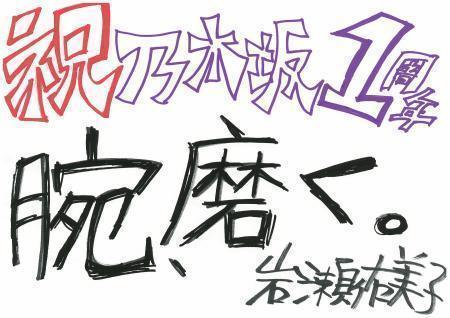 祝乃木坂1周年
腕、磨く。
岩瀬佑美子